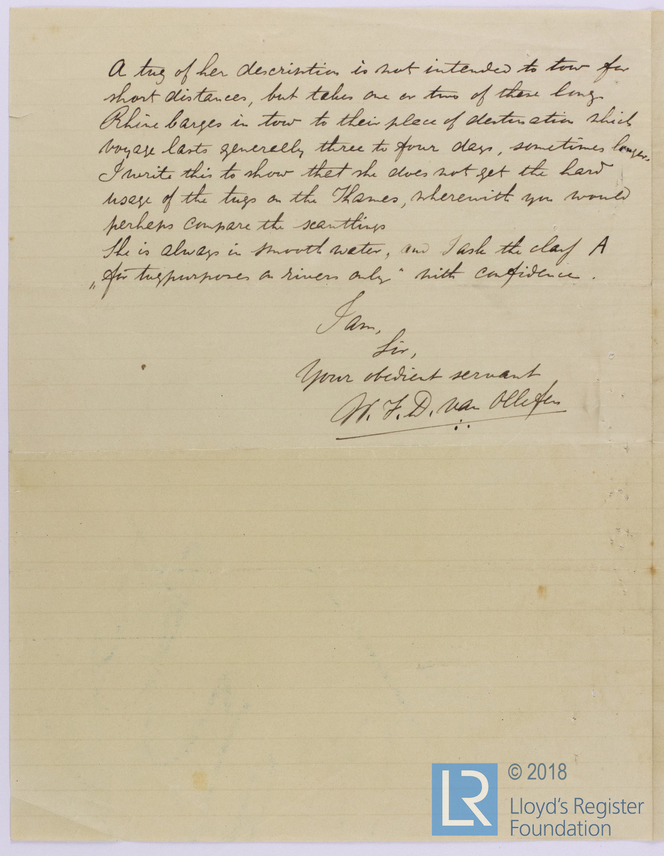 A tug of her description is not intended to tow for
short distances, but takes one or two of these long
Rhine barges in tow to their place of destination which
voyage lasts generally three to four days, sometimes longer.
I write this to show that she does not get the hard
usage of the tugs on the Thames, wherewith you would
perhaps compare the scantlings
She is always in smooth water, and I ask the class A
„for tugpurposes on rivers only" with confidence.
I am,
Sir,
Your obedient servant
W. F. D. van Ollefen
LR
© 2018
Lloyd's Register
Foundation